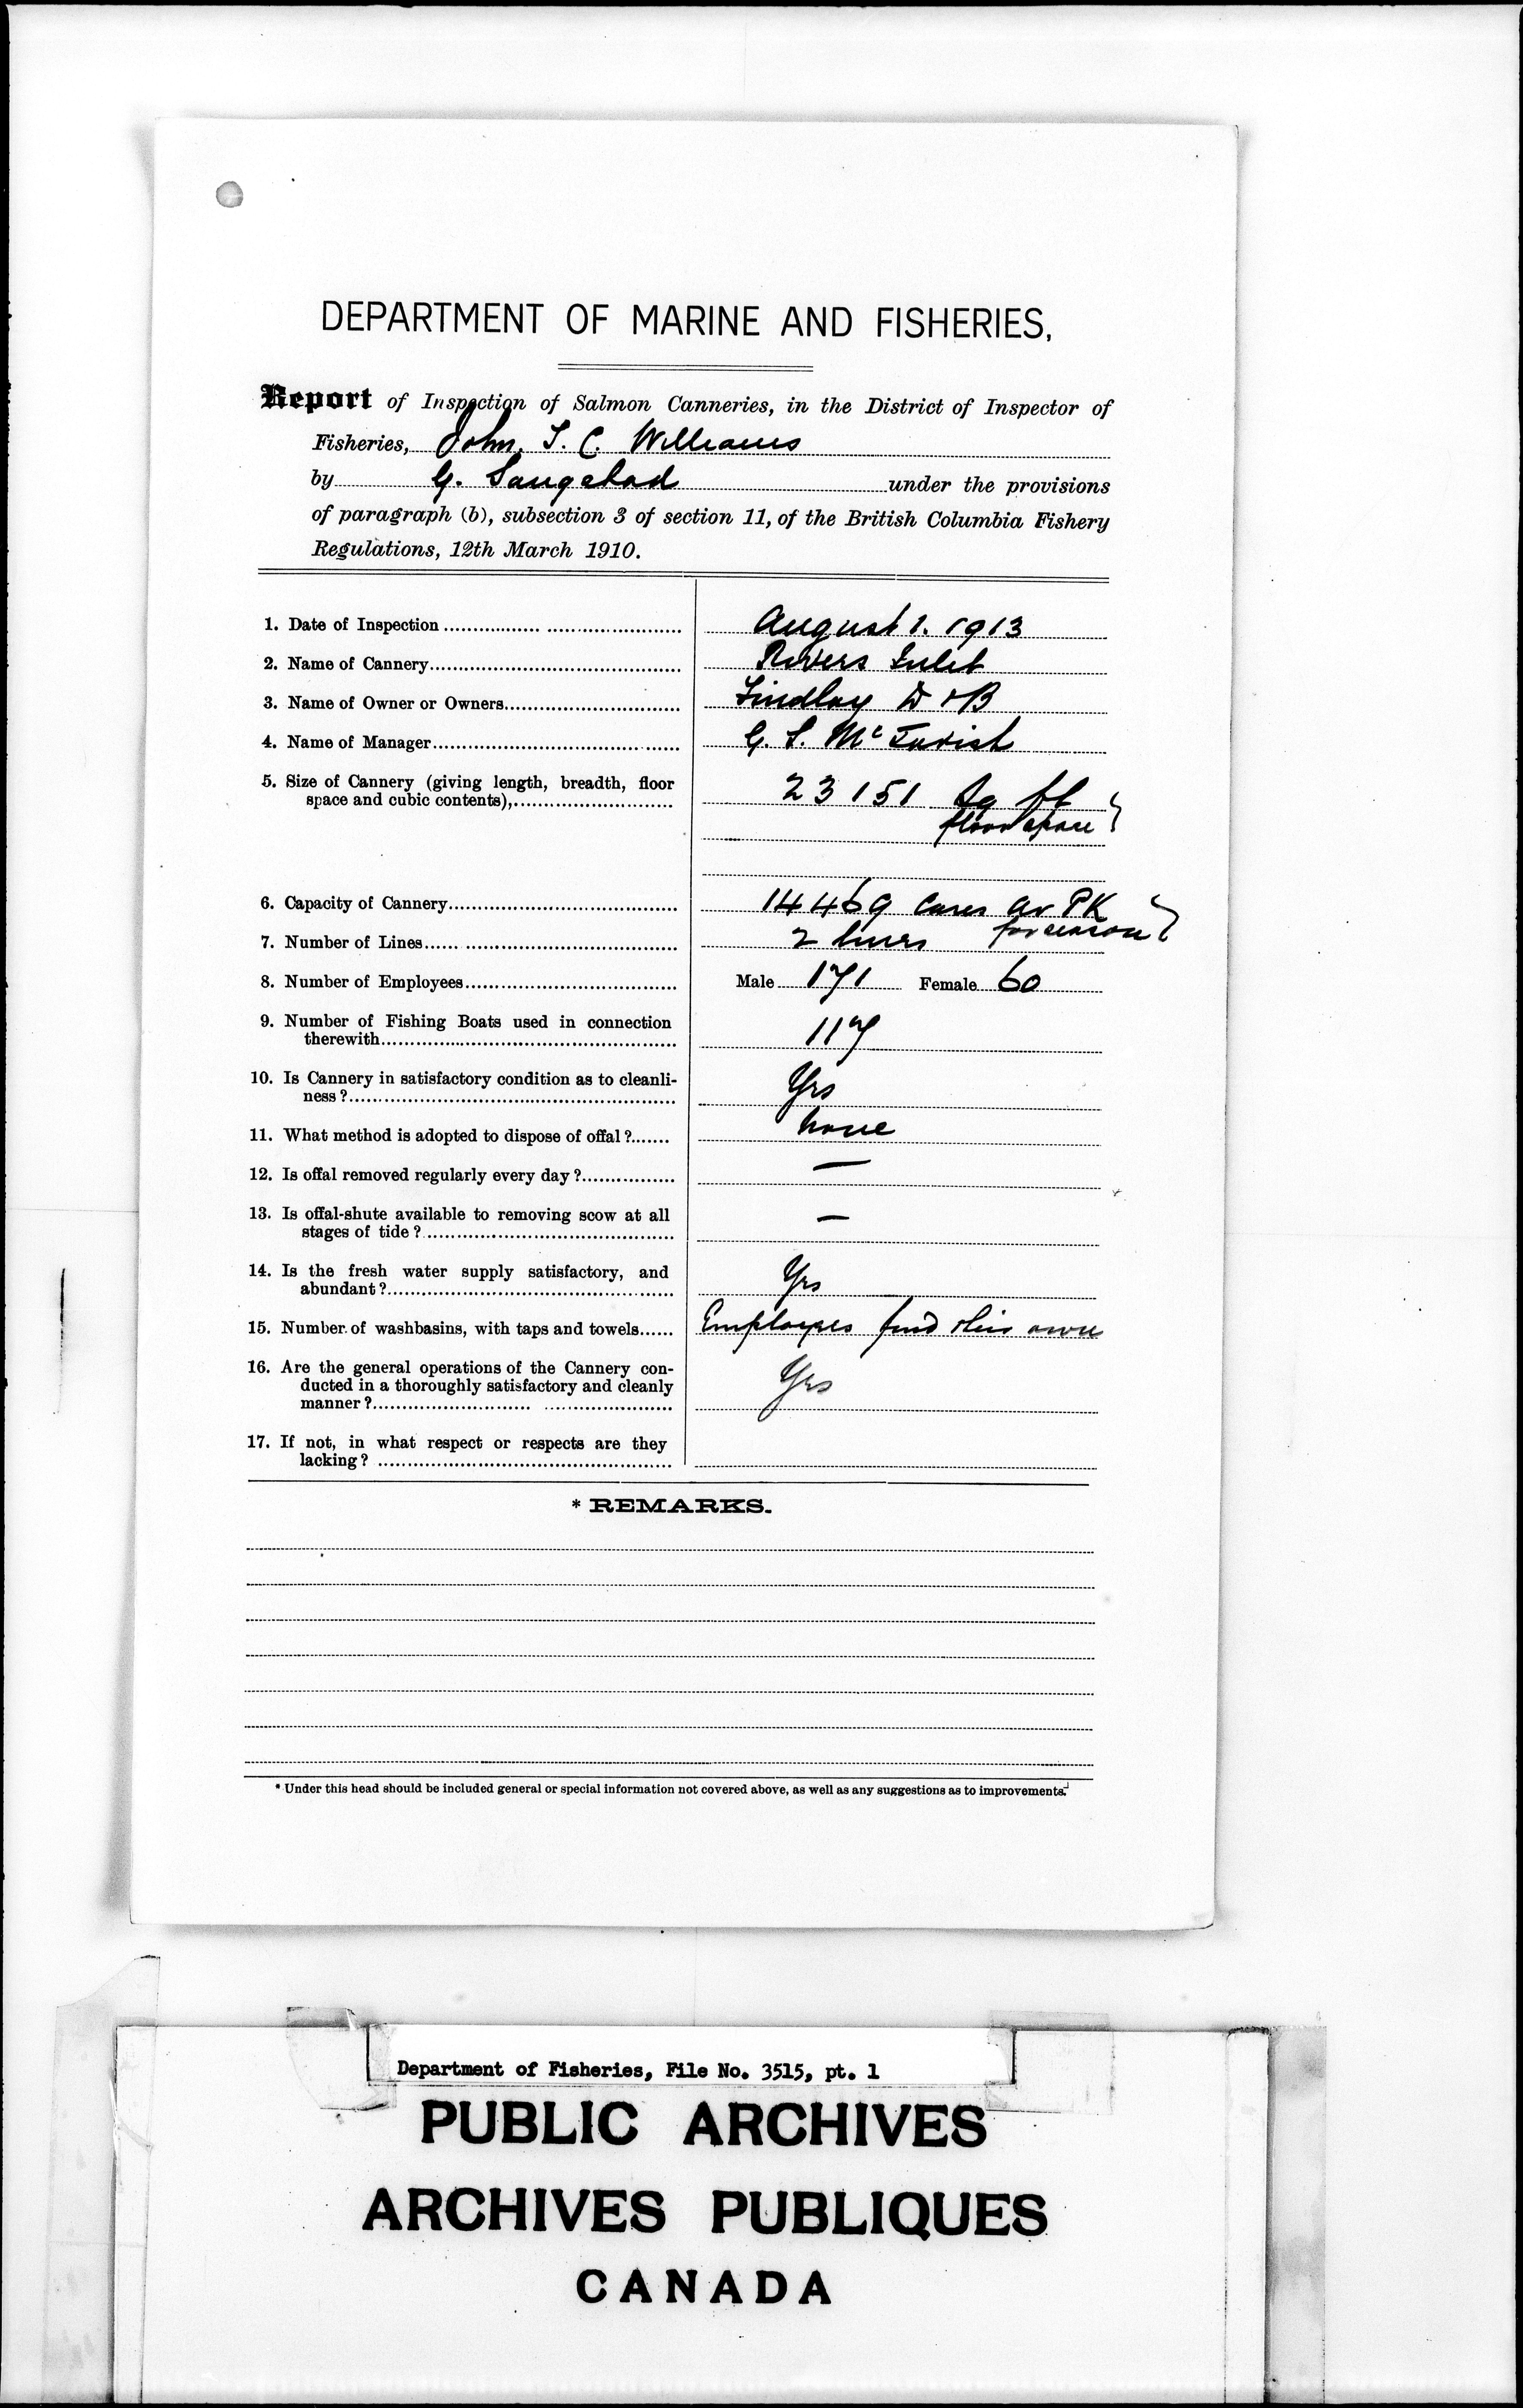 DEPARTMENT OF MARINE AND FISHERIES,
Report of Inspection of Salmon Canneries, in the District of Inspector of
Fisheries, John. T. C. Williams
by G. Saugstad under the provisions
of paragraph (b), subsection 3 of section 11, of the British Columbia Fishery
Regulations, 12th March 1910.
1. Date of Inspection August 1. 1913
2. Name of Cannery Rivers Inlet
3. Name of Owner or Owners Findlay D & B
4. Name of Manager G. S. McTavish
5. Size of Cannery (giving length, breadth, floor
space and cubic contents), 23151 Sq ft
floor space
6. Capacity of Cannery 14469 Cases av PK
for season
7. Number of Lines 2 lines
8. Number of Employees Male 171 Female 60
9. Number of Fishing Boats used in connection
therewith 117
10. Is Cannery in satisfactory condition as to cleanli-
ness? Yes
11. What method is adopted to dispose of offal? None
12. Is offal removed regularly every day? —
13. Is offal-shute available to removing scow at all
stages of tide? —
14. Is the fresh water supply satisfactory, and
abundant? Yes
15. Number of washbasins, with taps and towels Employees find their own
16. Are the general operations of the Cannery con-
ducted in a thoroughly satisfactory and cleanly
manner? Yes
17. If not, in what respect or respects are they
lacking?
* REMARKS.
* Under this head should be included general or special information not covered above, as well as any suggestions as to improvements.
Department of Fisheries, File No. 3515, pt. 1
PUBLIC ARCHIVES
ARCHIVES PUBLIQUES
CANADA